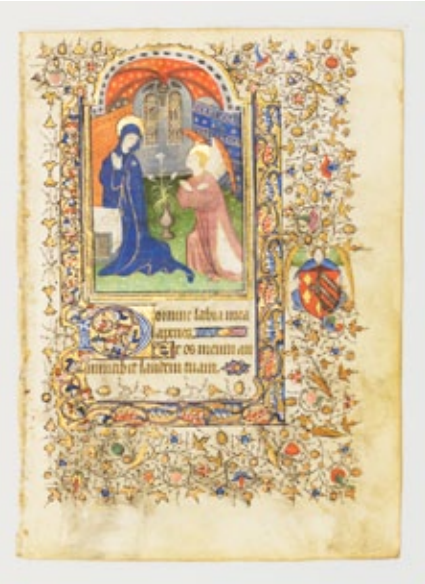 Domine labia mea
aperies
Et os meum an
nuntiabit laudem tuam